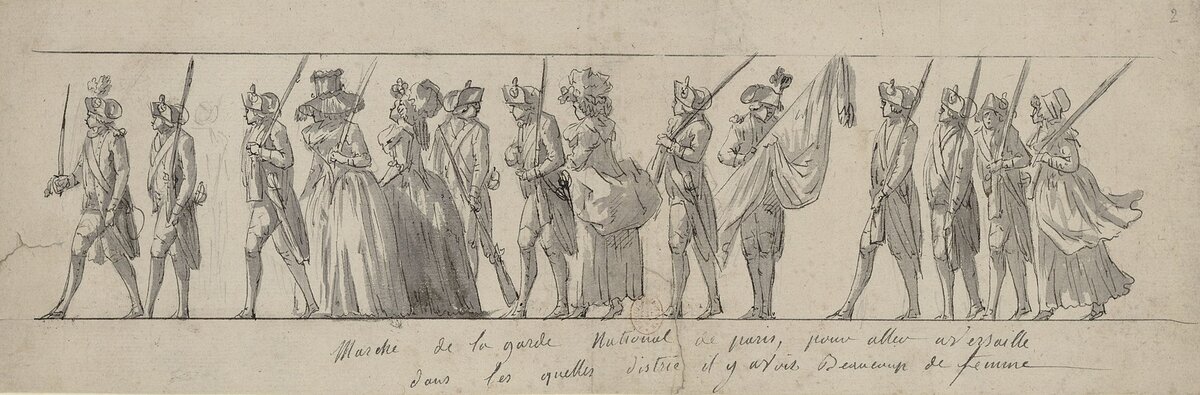 2
Marche de la garde National de paris, pour aller a Versaille
dans les quelles distric il y avoit Beaucoup de femme